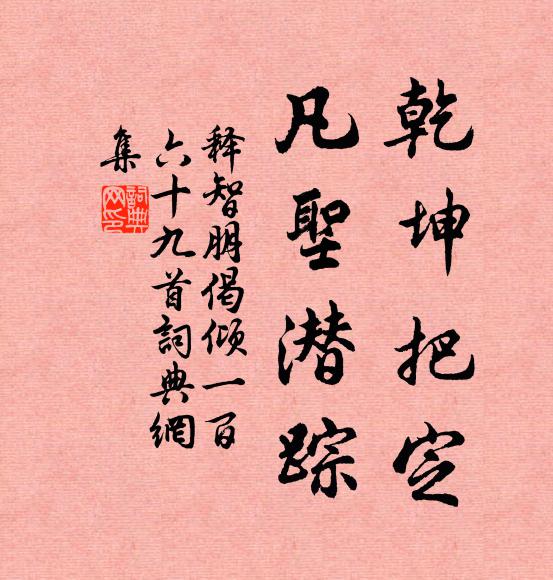 乾坤把定
凡聖潜踪
释智朋偈倾一百
六十九首詞典網
集
詞典网印